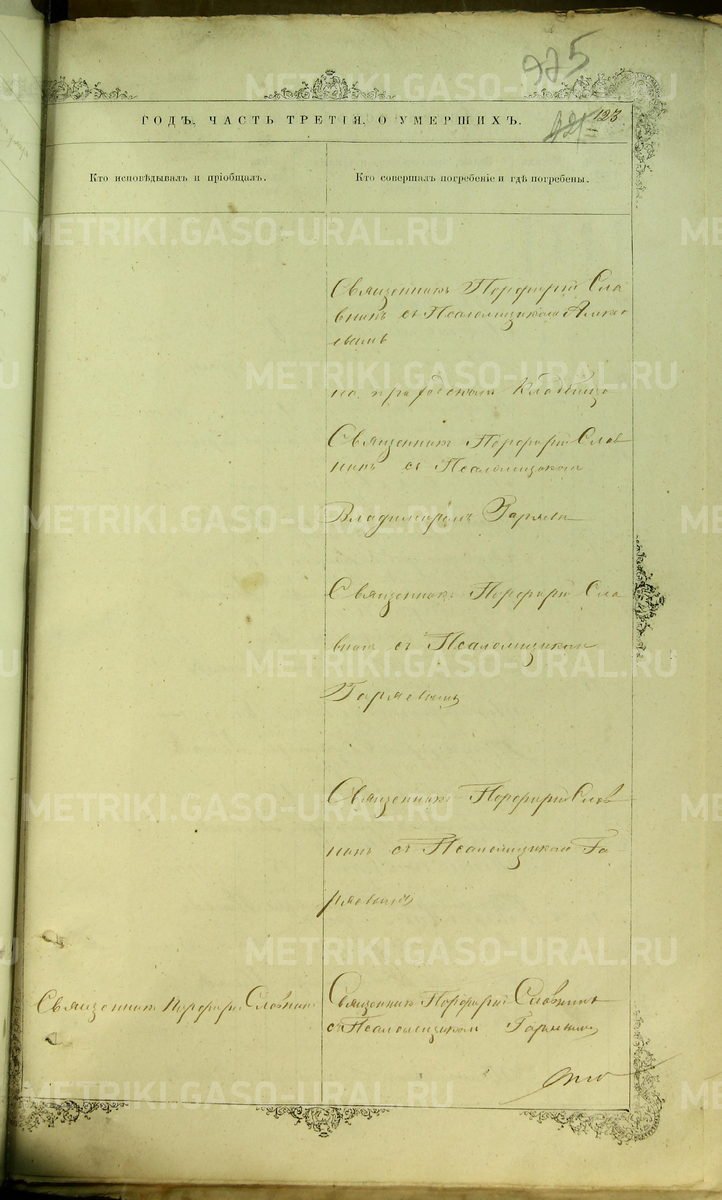 925
123
ГОДЪ. ЧАСТЬ ТРЕТІЯ, О УМЕРШИХЪ.
Кто исповѣдывалъ и пріобщалъ.
Кто совершалъ погребеніе и гдѣ погребены.
Священникъ Порфирій Сла
внинъ съ Псаломщикомъ
на приходскомъ Кладбище
Священникъ Порфирій Слав
нинъ съ Псаломщикомъ
Владимиромъ
Священникъ Порфирій Сла
внинъ съ Псаломщикомъ
Гаряевымъ
Священникъ Порфирій Слав
нинъ съ Псаломщикомъ Га
ряевымъ
Священникъ Порфирій Славнинъ
Священникъ Порфирій Славнинъ
съ Псаломщикомъ Гаряевымъ
METRIKI.GASO-URAL.RU